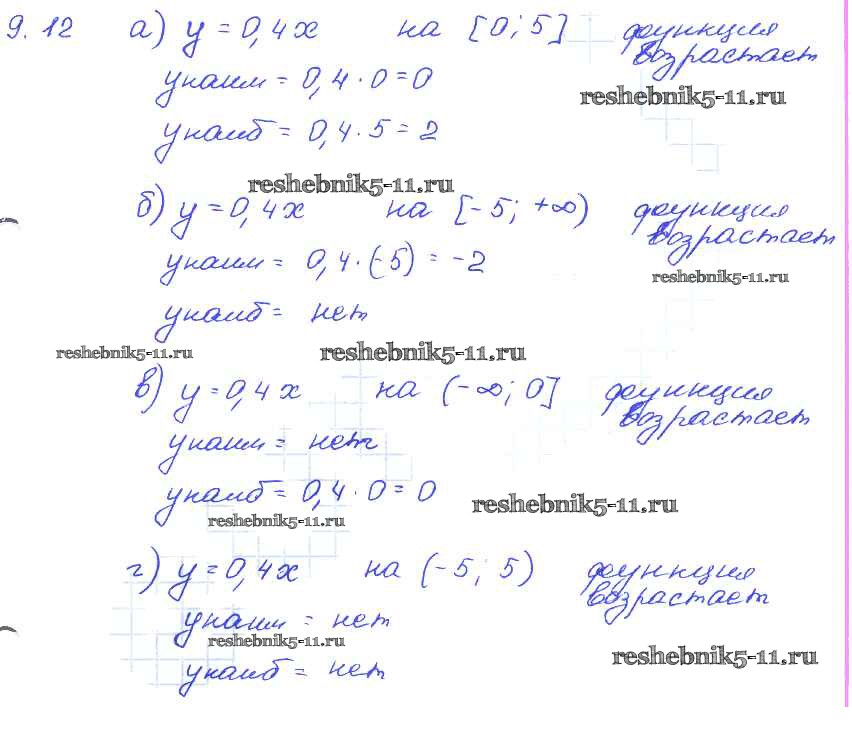 9.12 а) y = 0,4x на [0; 5] функция возрастает
yнаим = 0,4 · 0 = 0
reshebnik5-11.ru
yнаиб = 0,4 · 5 = 2
reshebnik5-11.ru
б) y = 0,4x на [-5; +∞) функция возрастает
yнаим = 0,4 · (-5) = -2
reshebnik5-11.ru
yнаиб = нет
reshebnik5-11.ru reshebnik5-11.ru
в) y = 0,4x на (-∞; 0] функция возрастает
yнаим = нет
yнаиб = 0,4 · 0 = 0
reshebnik5-11.ru
reshebnik5-11.ru
г) y = 0,4x на (-5; 5) функция возрастает
yнаим = нет
reshebnik5-11.ru
reshebnik5-11.ru
yнаиб = нет